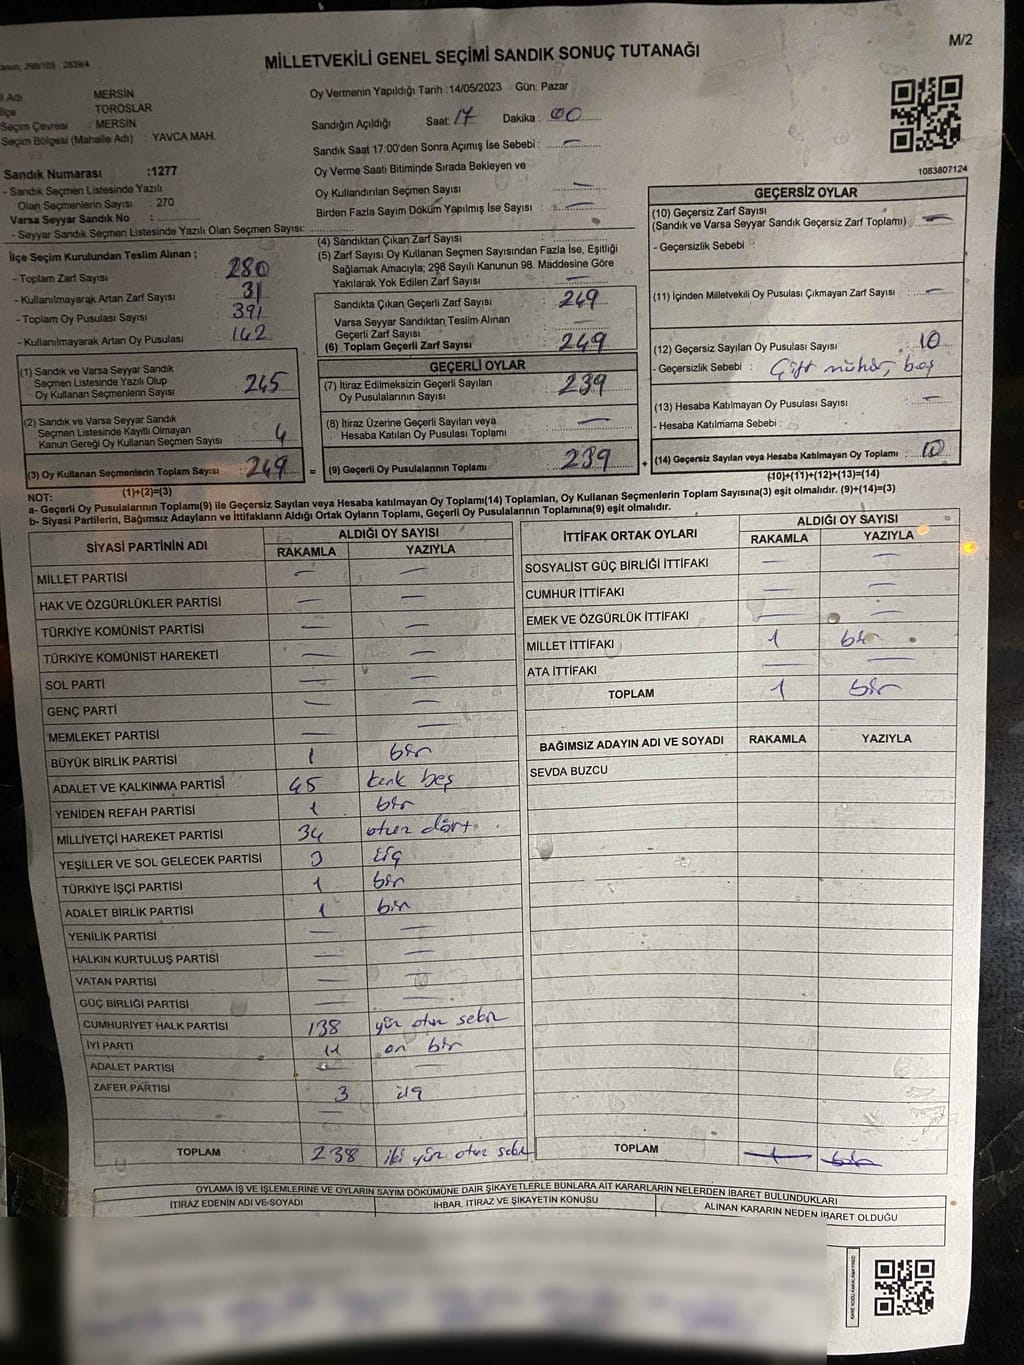 M/2
MİLLETVEKİLİ GENEL SEÇİMİ SANDIK SONUÇ TUTANAĞI
MERSİN
TOROSLAR
Seçim Çevresi : MERSİN
Seçim Bölgesi (Mahalle Adı) : YAVCA MAH.
Oy Vermenin Yapıldığı Tarih :14/05/2023 Gün: Pazar
Sandığın Açıldığı Saat: 17 Dakika : 00
Sandık Saat 17:00'den Sonra Açımış İse Sebebi : —
Oy Verme Saati Bitiminde Sırada Bekleyen ve
Oy Kullandırılan Seçmen Sayısı —
Birden Fazla Sayım Döküm Yapılmış İse Sayısı : —
1083807124
Sandık Numarası :1277
- Sandık Seçmen Listesinde Yazılı
Olan Seçmenlerin Sayısı : 270
Varsa Seyyar Sandık No :
- Seyyar Sandık Seçmen Listesinde Yazılı Olan Seçmen Sayısı:
İlçe Seçim Kurulundan Teslim Alınan ;
- Toplam Zarf Sayısı : 280
- Kullanılmayarak Artan Zarf Sayısı : 31
- Toplam Oy Pusulası Sayısı : 391
- Kullanılmayarak Artan Oy Pusulası : 142
(1) Sandık ve Varsa Seyyar Sandık
Seçmen Listesinde Yazılı Olup
Oy Kullanan Seçmenlerin Sayısı : 245
(2) Sandık ve Varsa Seyyar Sandık
Seçmen Listesinde Kayıtlı Olmayan
Kanun Gereği Oy Kullanan Seçmen Sayısı : 4
(3) Oy Kullanan Seçmenlerin Toplam Sayısı : 249
(1)+(2)=(3)
(4) Sandıktan Çıkan Zarf Sayısı :
(5) Zarf Sayısı Oy Kullanan Seçmen Sayısından Fazla İse, Eşitliği
Sağlamak Amacıyla; 298 Sayılı Kanunun 98. Maddesine Göre
Yakılarak Yok Edilen Zarf Sayısı : —
Sandıkta Çıkan Geçerli Zarf Sayısı : 249
Varsa Seyyar Sandıktan Teslim Alınan
Geçerli Zarf Sayısı : —
(6) Toplam Geçerli Zarf Sayısı : 249
GEÇERLİ OYLAR
(7) İtiraz Edilmeksizin Geçerli Sayılan
Oy Pusulalarının Sayısı : 239
(8) İtiraz Üzerine Geçerli Sayılan veya
Hesaba Katılan Oy Pusulası Toplamı : —
= (9) Geçerli Oy Pusulalarının Toplamı : 239 +
GEÇERSİZ OYLAR
(10) Geçersiz Zarf Sayısı
(Sandık ve Varsa Seyyar Sandık Geçersiz Zarf Toplamı) : —
- Geçersizlik Sebebi :
(11) İçinden Milletvekili Oy Pusulası Çıkmayan Zarf Sayısı : —
(12) Geçersiz Sayılan Oy Pusulası Sayısı : 10
- Geçersizlik Sebebi : Çift mühür, boş
(13) Hesaba Katılmayan Oy Pusulası Sayısı : —
- Hesaba Katılmama Sebebi :
(14) Geçersiz Sayılan veya Hesaba Katılmayan Oy Toplamı : 10
(10)+(11)+(12)+(13)=(14)
NOT:
a- Geçerli Oy Pusulalarının Toplamı(9) ile Geçersiz Sayılan veya Hesaba katılmayan Oy Toplamı(14) Toplamları, Oy Kullanan Seçmenlerin Toplam Sayısına(3) eşit olmalıdır. (9)+(14)=(3)
b- Siyasi Partilerin, Bağımsız Adayların ve İttifakların Aldığı Ortak Oyların Toplamı, Geçerli Oy Pusulalarının Toplamına(9) eşit olmalıdır.
SİYASİ PARTİNİN ADI ALDIĞI OY SAYISI
RAKAMLA YAZIYLA
MİLLET PARTİSİ — —
HAK VE ÖZGÜRLÜKLER PARTİSİ — —
TÜRKİYE KOMÜNİST PARTİSİ — —
TÜRKİYE KOMÜNİST HAREKETİ — —
SOL PARTİ — —
GENÇ PARTİ — —
MEMLEKET PARTİSİ —
BÜYÜK BİRLİK PARTİSİ 1 bir
ADALET VE KALKINMA PARTİSİ 45 kırk beş
YENİDEN REFAH PARTİSİ 1 bir
MİLLİYETÇİ HAREKET PARTİSİ 34 otuz dört
YEŞİLLER VE SOL GELECEK PARTİSİ 3 üç
TÜRKİYE İŞÇİ PARTİSİ 1 bir
ADALET BİRLİK PARTİSİ 1 bir
YENİLİK PARTİSİ — —
HALKIN KURTULUŞ PARTİSİ — —
VATAN PARTİSİ — —
GÜÇ BİRLİĞİ PARTİSİ — —
CUMHURİYET HALK PARTİSİ 138 yüz otuz sekiz
İYİ PARTİ 11 on bir
ADALET PARTİSİ — —
ZAFER PARTİSİ 3 üç
—
TOPLAM 238 iki yüz otuz sekiz
İTTİFAK ORTAK OYLARI ALDIĞI OY SAYISI
RAKAMLA YAZIYLA
SOSYALİST GÜÇ BİRLİĞİ İTTİFAKI — —
CUMHUR İTTİFAKI — —
EMEK VE ÖZGÜRLÜK İTTİFAKI — —
MİLLET İTTİFAKI 1 bir
ATA İTTİFAKI — —
TOPLAM 1 bir
BAĞIMSIZ ADAYIN ADI VE SOYADI RAKAMLA YAZIYLA
SEVDA BUZCU
TOPLAM 1 bir
OYLAMA İŞ VE İŞLEMLERİNE VE OYLARIN SAYIM DÖKÜMÜNE DAİR ŞİKAYETLERLE BUNLARA AİT KARARLARIN NELERDEN İBARET BULUNDUKLARI
İTİRAZ EDENİN ADI VE-SOYADI İHBAR, İTİRAZ VE ŞİKAYETİN KONUSU ALINAN KARARIN NEDEN İBARET OLDUĞU